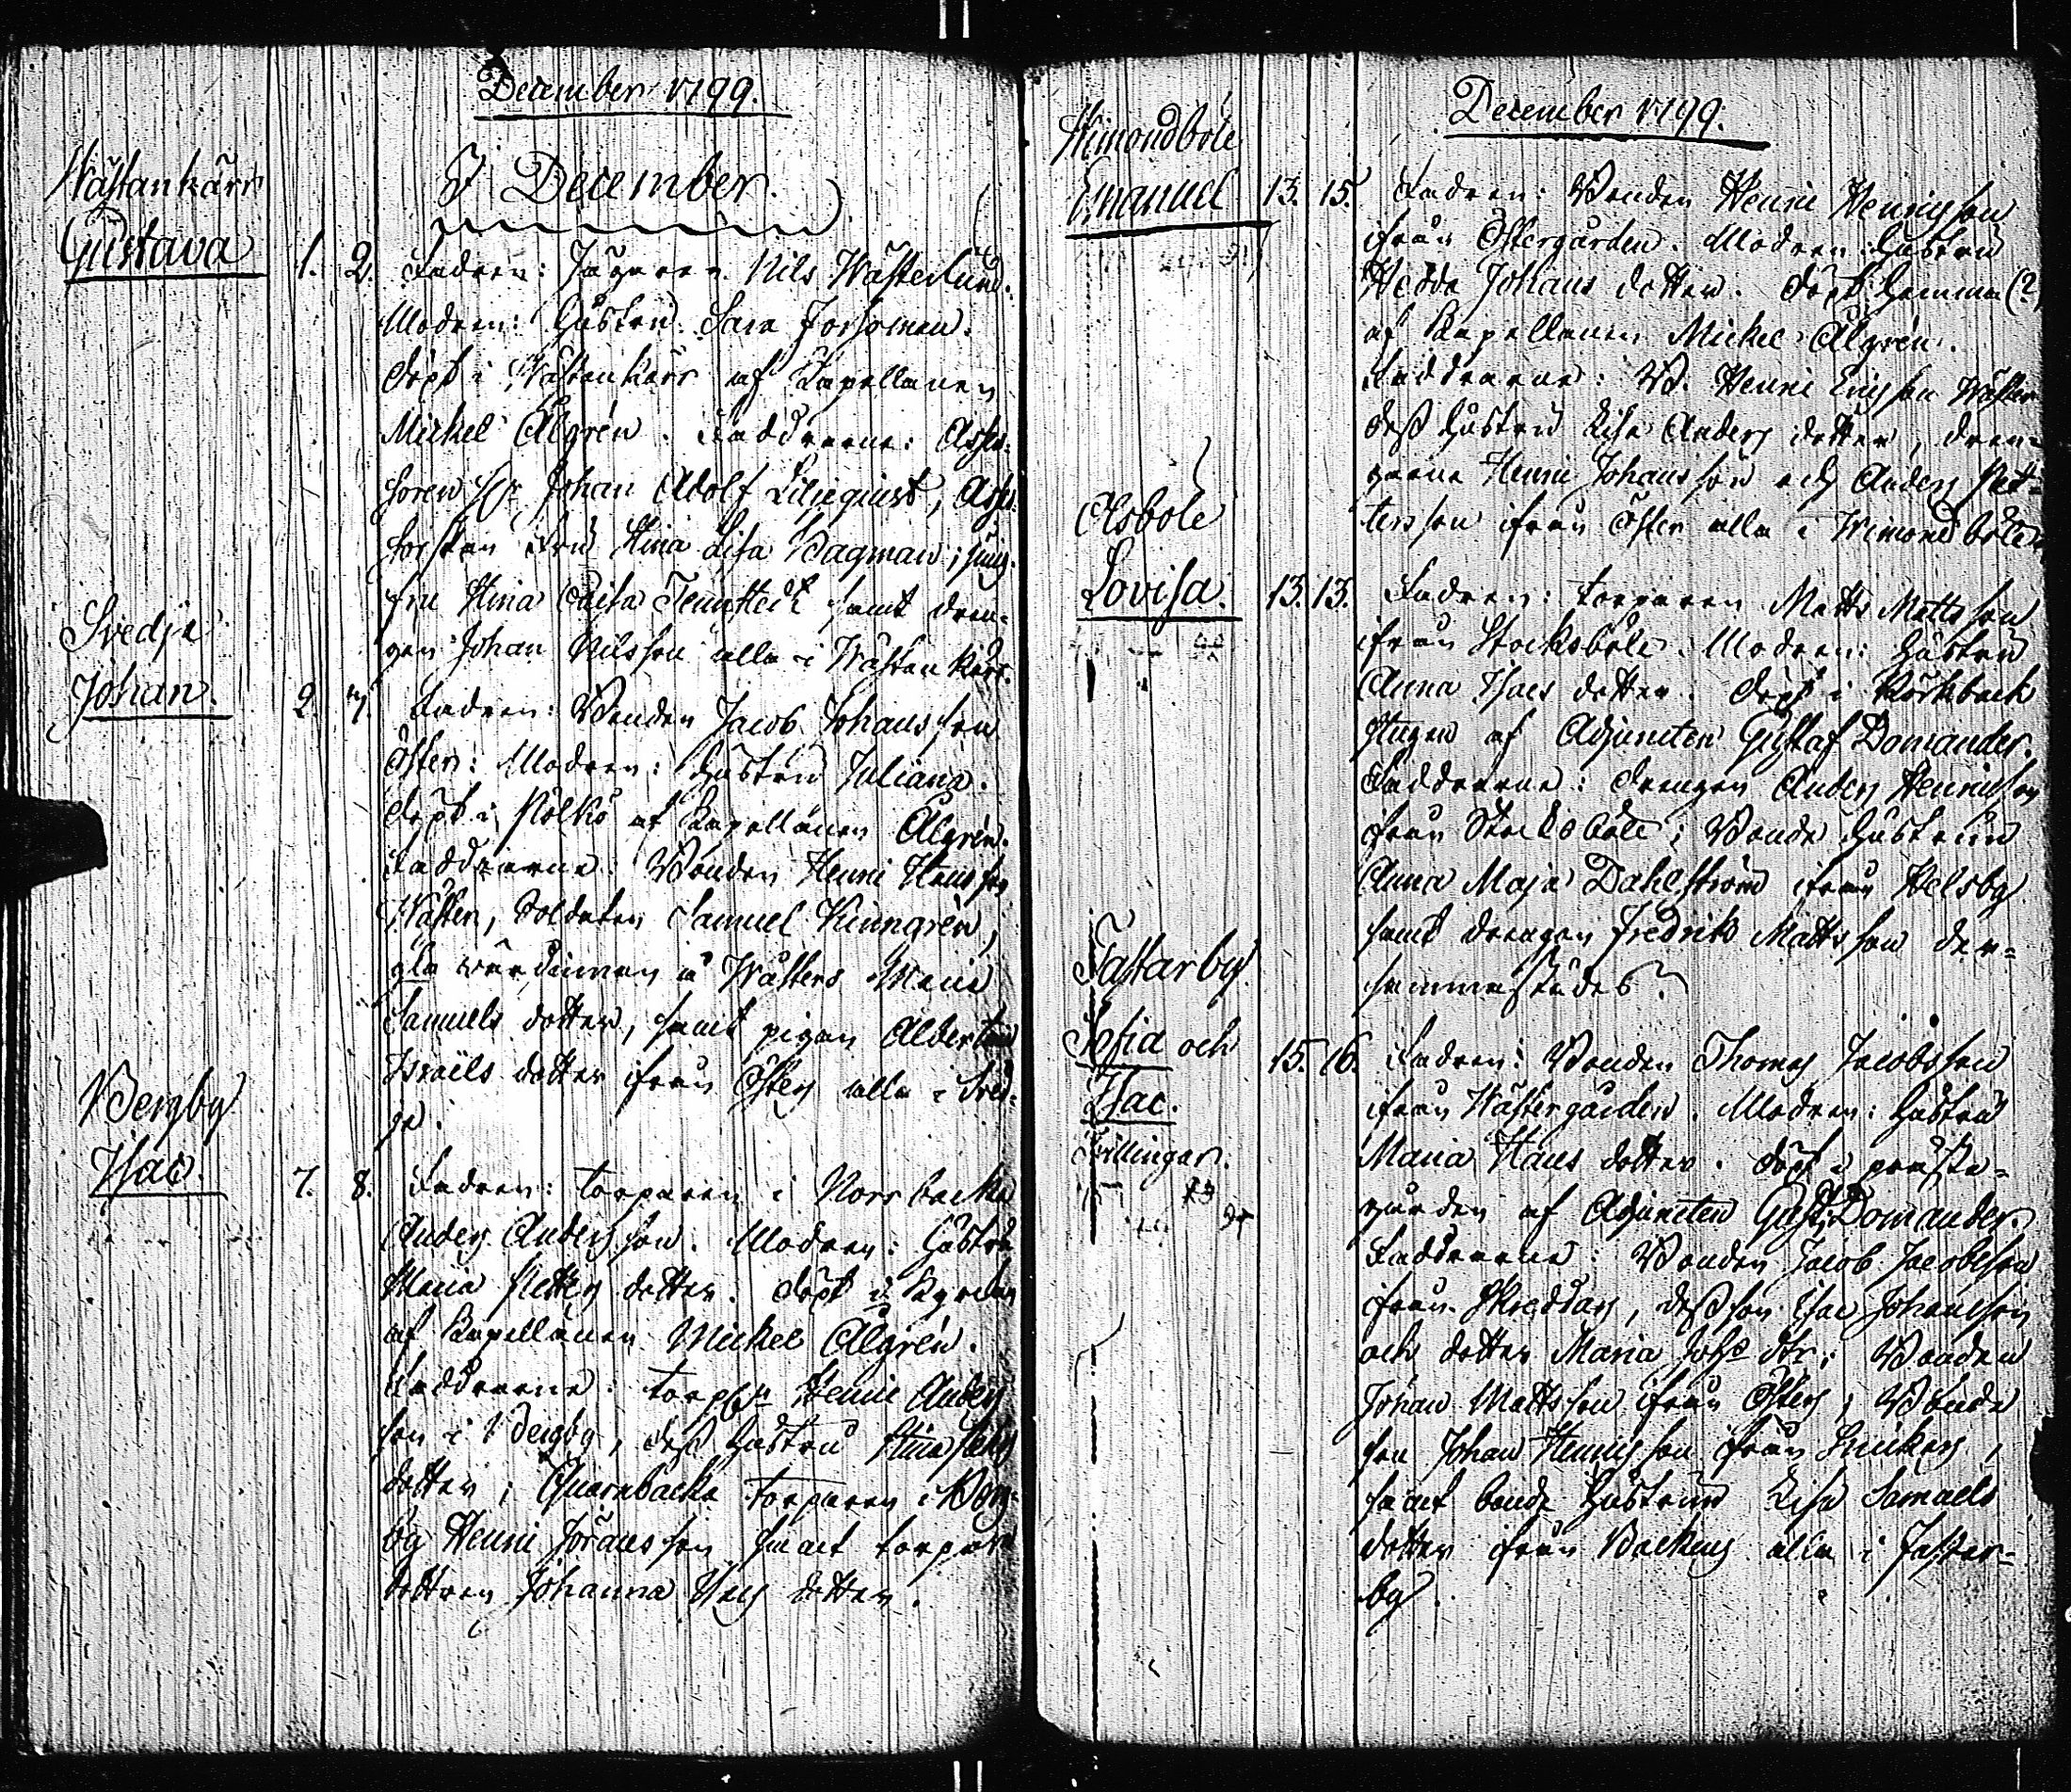 December 1799.
I December.
Wästankärr
Gustava 1. 2. Fadren: Jägaren Nils Wästerlund.
Modren: Hustru Sara Forsoman.
döpt i Wästankärr af Kapellanen
Mickel Algrén. Faddrarne: Asses-
soren Hr Johan Adolf Liljequist, Asses-
sorskan Fru Stina Lisa Bagman; jung-
fru Stina Caisa Tennstedt samt dren-
gen Johan Nilsson alla i Wästankärr.
Svedja
Johan. 2. 7. Fadren: Bonden Jacob Johansson
Öster: Modren: Hustru Juliana.
döpt i Nölkö af Kapellanen Algrén.
Faddrarne: Bonden Henric Hansson
Wäster, Soldaten Samuel Kinngrén,
gla värdinnan à Wästers Maria
Samuels dotter, samt pigan Albertina
Israëls dotter ifrån Österz alla i Sved-
ja.
Bemby
Isac. 7. 8. Fadren: torparen i Norrbacka
Anders Andersson. Modren: Hustru
Maria Petters dotter. döpt i Kyrckan
af Kapellanen Mickel Algrén.
Faddrarne: torp Henric Anders
son i Bemby, dess Hustru Stina
dotter; Quarnbacka torparen i Bem-
by Henric Jöransson samt torpare
dottren Johanna dotter.
December 1799.
Wimondböle
Emanuel 13. 15. Fadren: Bonden Henric Henricsson
ifrån Östergården. Modren: Hustru
Hedda Johans dotter. döpt hemma (?)
af Kapellanen Mickel Algrén.
Faddrarne: B. Henric Ericsson Wäster
dess hustru Lisa Anders dotter, dren-
garne Henric Johansson och Anders Pet-
tersson ifrån Öster alla i Wimondböle.
Åsböle
Lovisa. 13. 13. Fadren: torparen Matts Mattsson
ifrån Stocksböle. Modren: Hustru
Anna Isacs dotter. döpt i Körkback
stugun af Adjuncten Gustaf Domander.
Faddrarne: drengen Anders Henricsson
ifrån Stocksböle; Bonde Hustrun
Anna Maja Dahlström ifrån Helsby
samt drengen Fredrik Mattsson der-
sammastädes.
Tastarby
Sofia och 15. 16. Fadren: Bonden Thomas Jacobsson
Isac.
Tvillingar.
ifrån Wästergården. Modren: Hustru
Maria Hans dotter. döpt i prästa-
gården af Adjuncten Gust. Domander.
Faddrarne: Bonden Jacob Jacobsson
ifrån Skreddars, dess son Isac Johansson
och dotter Maria Johs dtr; Bonden
Johan Mattsson ifrån Österz; Bonde
son Johan Henricsson ifrån Snickars,
samt bonde Hustrun Lisa Samuels
dotter ifrån Backens alla i Taster-
by.